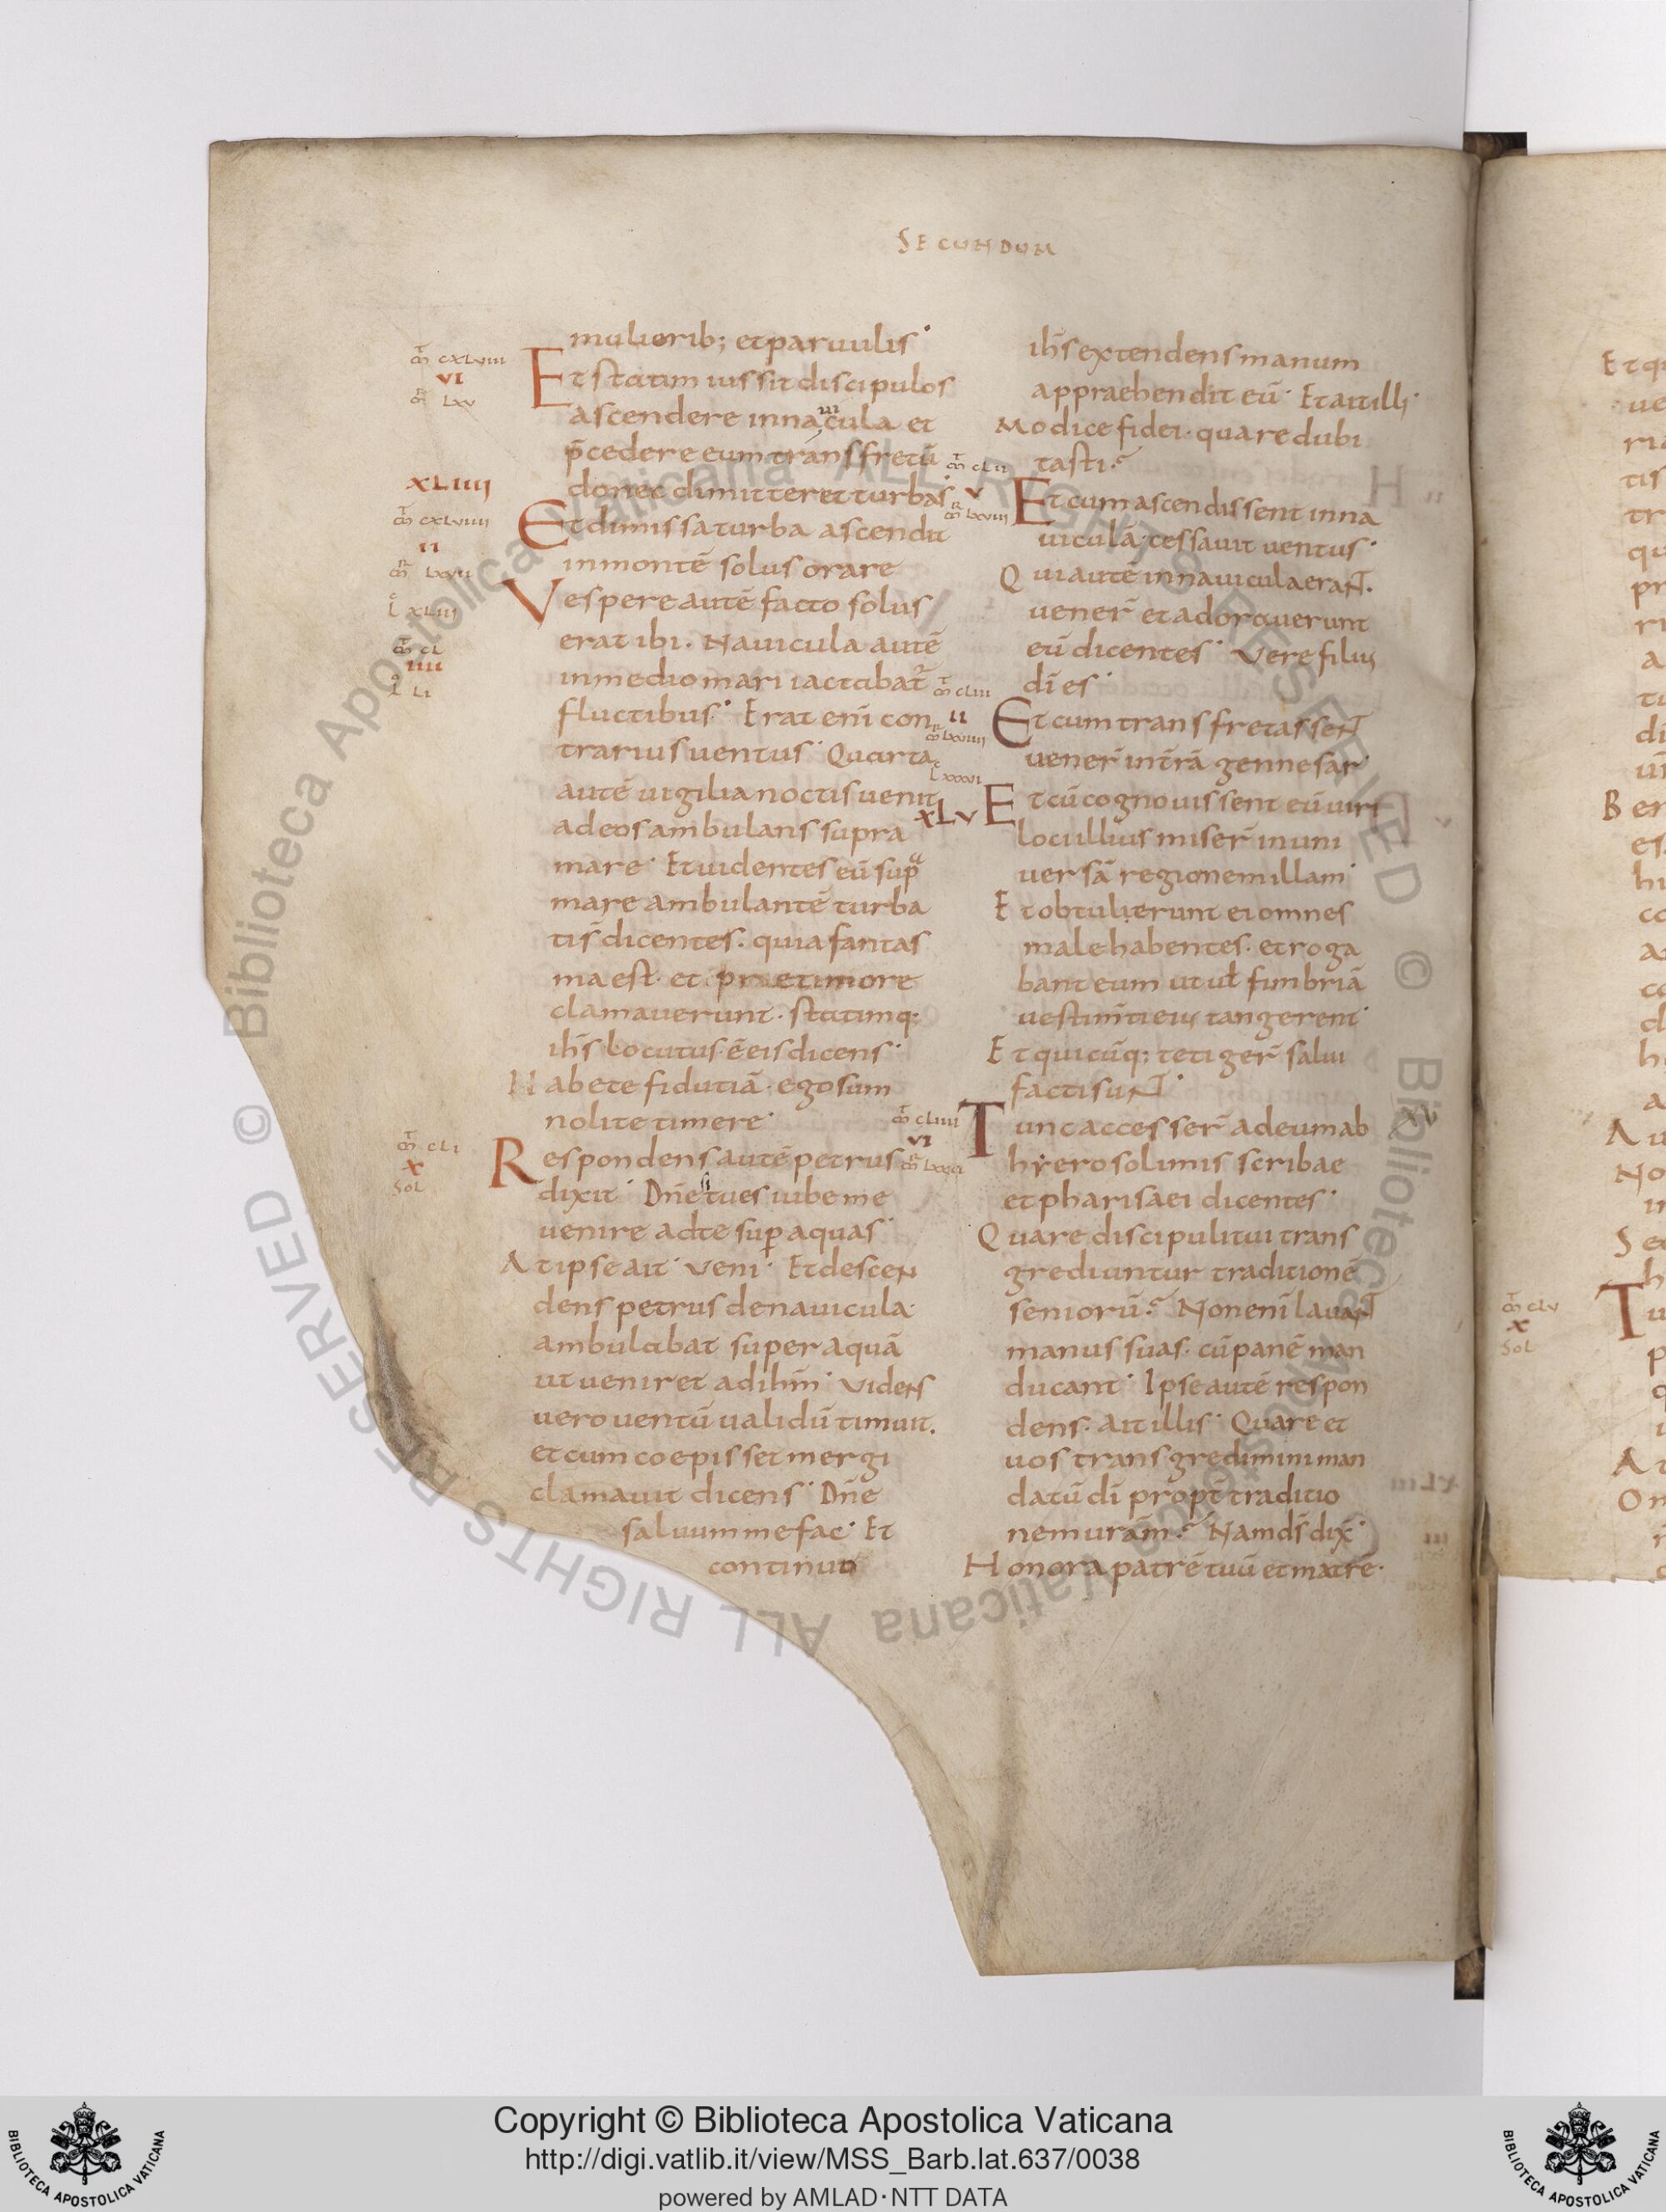 SECUNDUM
mulierib; et paruulis·
Et statim iussit discipulos
ascendere in nauicula et
p̄cedere eum trans fretū
donec dimitteret turbas·
Et dimissa turba ascendit
in montē solus orare
Vespere autē facto solus
erat ibi. Nauicula autē
in medio mari iactabat̄
fluctibus· Erat enī con
trarius uentus· Quarta
autē uigilia noctis uenit
ad eos ambulans supra
mare· Et uidentes eū supa
mare ambulantē turba
ti s̄ dicentes. quia fantas
ma est· et prae timore
clamauerunt. statimq;
ih̄s locutus ē eis dicens·
Habete fidutiā· ego sum
nolite timere·
Respondens autē petrus
dixit· Dn̄e si tu es iube me
uenire ad te sup̄ aquas·
At ipse ait· Veni· Et descen
dens petrus de nauicula·
ambulabat super aquā
ut ueniret ad ih̄m· Videns
uero uentū ualidū timuit.
et cum coepisset mergi
clamauit dicens· Dn̄e
saluum me fac· Et
continuo
ih̄s extendens manum
appraehendit eū· Et ait illi·
Modice fidei· quare dubi
tasti?
Et cum ascendissent in na
uiculā· cessauit uentus·
Qui autē in nauicula eranT.
uener̄ et adorauerunt
eū dicentes· Vere filius
dī es·
Et cum transfretassenT
uener̄ in t̄rā gennesar·
Et cū cognouissent eū uiri
loci illius miser̄ in uni
uersā regionem illam·
Et obtulierunt ei omnes
male habentes· et roga
bant eum ut ul̄ fimbriā
uestim̄ti eius tangerent·
Et quicūq; tetiger̄ salui
facti sunT·
Tunc accesser̄ ad eum ab
hyerosolimis scribae
et pharisaei dicentes·
Quare discipuli tui trans
grediuntur traditionē
seniorū? Non enī lauanT
manus suas· cū panē man
ducant· Ipse autē respon
dens· ait illis· Quare et
uos transgredimini man
datū dī propt̄ traditio
nem ur̄am? Nam d̄s dix̄·
Honora patrē tuū et matrē·
m̄ CXLVIII
VI
m̄ LXV
XLIIII
m̄ CXLVIIII
II
L XLIII
m̄ CL
IIII
L LI
m̄ CLI
X
Sol
m̄ CLII
V
m̄ LXVIII
m̄ CLIII
II
m̄ LXVIIII
XLV
m̄ CLIIII
VI
m̄ CLV
X
Sol
© Biblioteca Apostolica Vaticana ALL RIGHTS RESERVED © Biblioteca Apostolica Vaticana ALL RIGHTS RESERVED
Copyright © Biblioteca Apostolica Vaticana
http://digi.vatlib.it/view/MSS_Barb.lat.637/0038
powered by AMLAD·NTT DATA
BIBLIOTECA APOSTOLICA VATICANA
BIBLIOTECA APOSTOLICA VATICANA